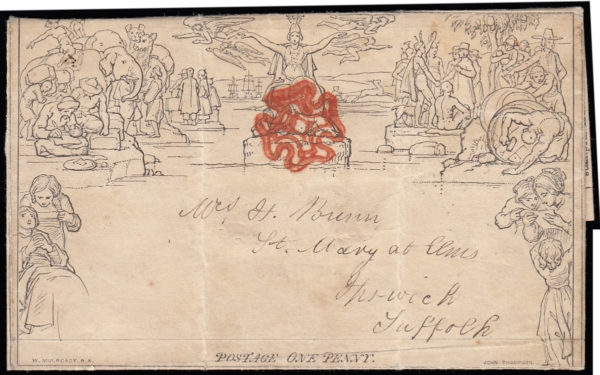 Mrs H. Brunn
St. Mary at Elms
Ipswich
Suffolk
POSTAGE ONE PENNY.
W. MULREADY. R.A.
JOHN THOMPSON.